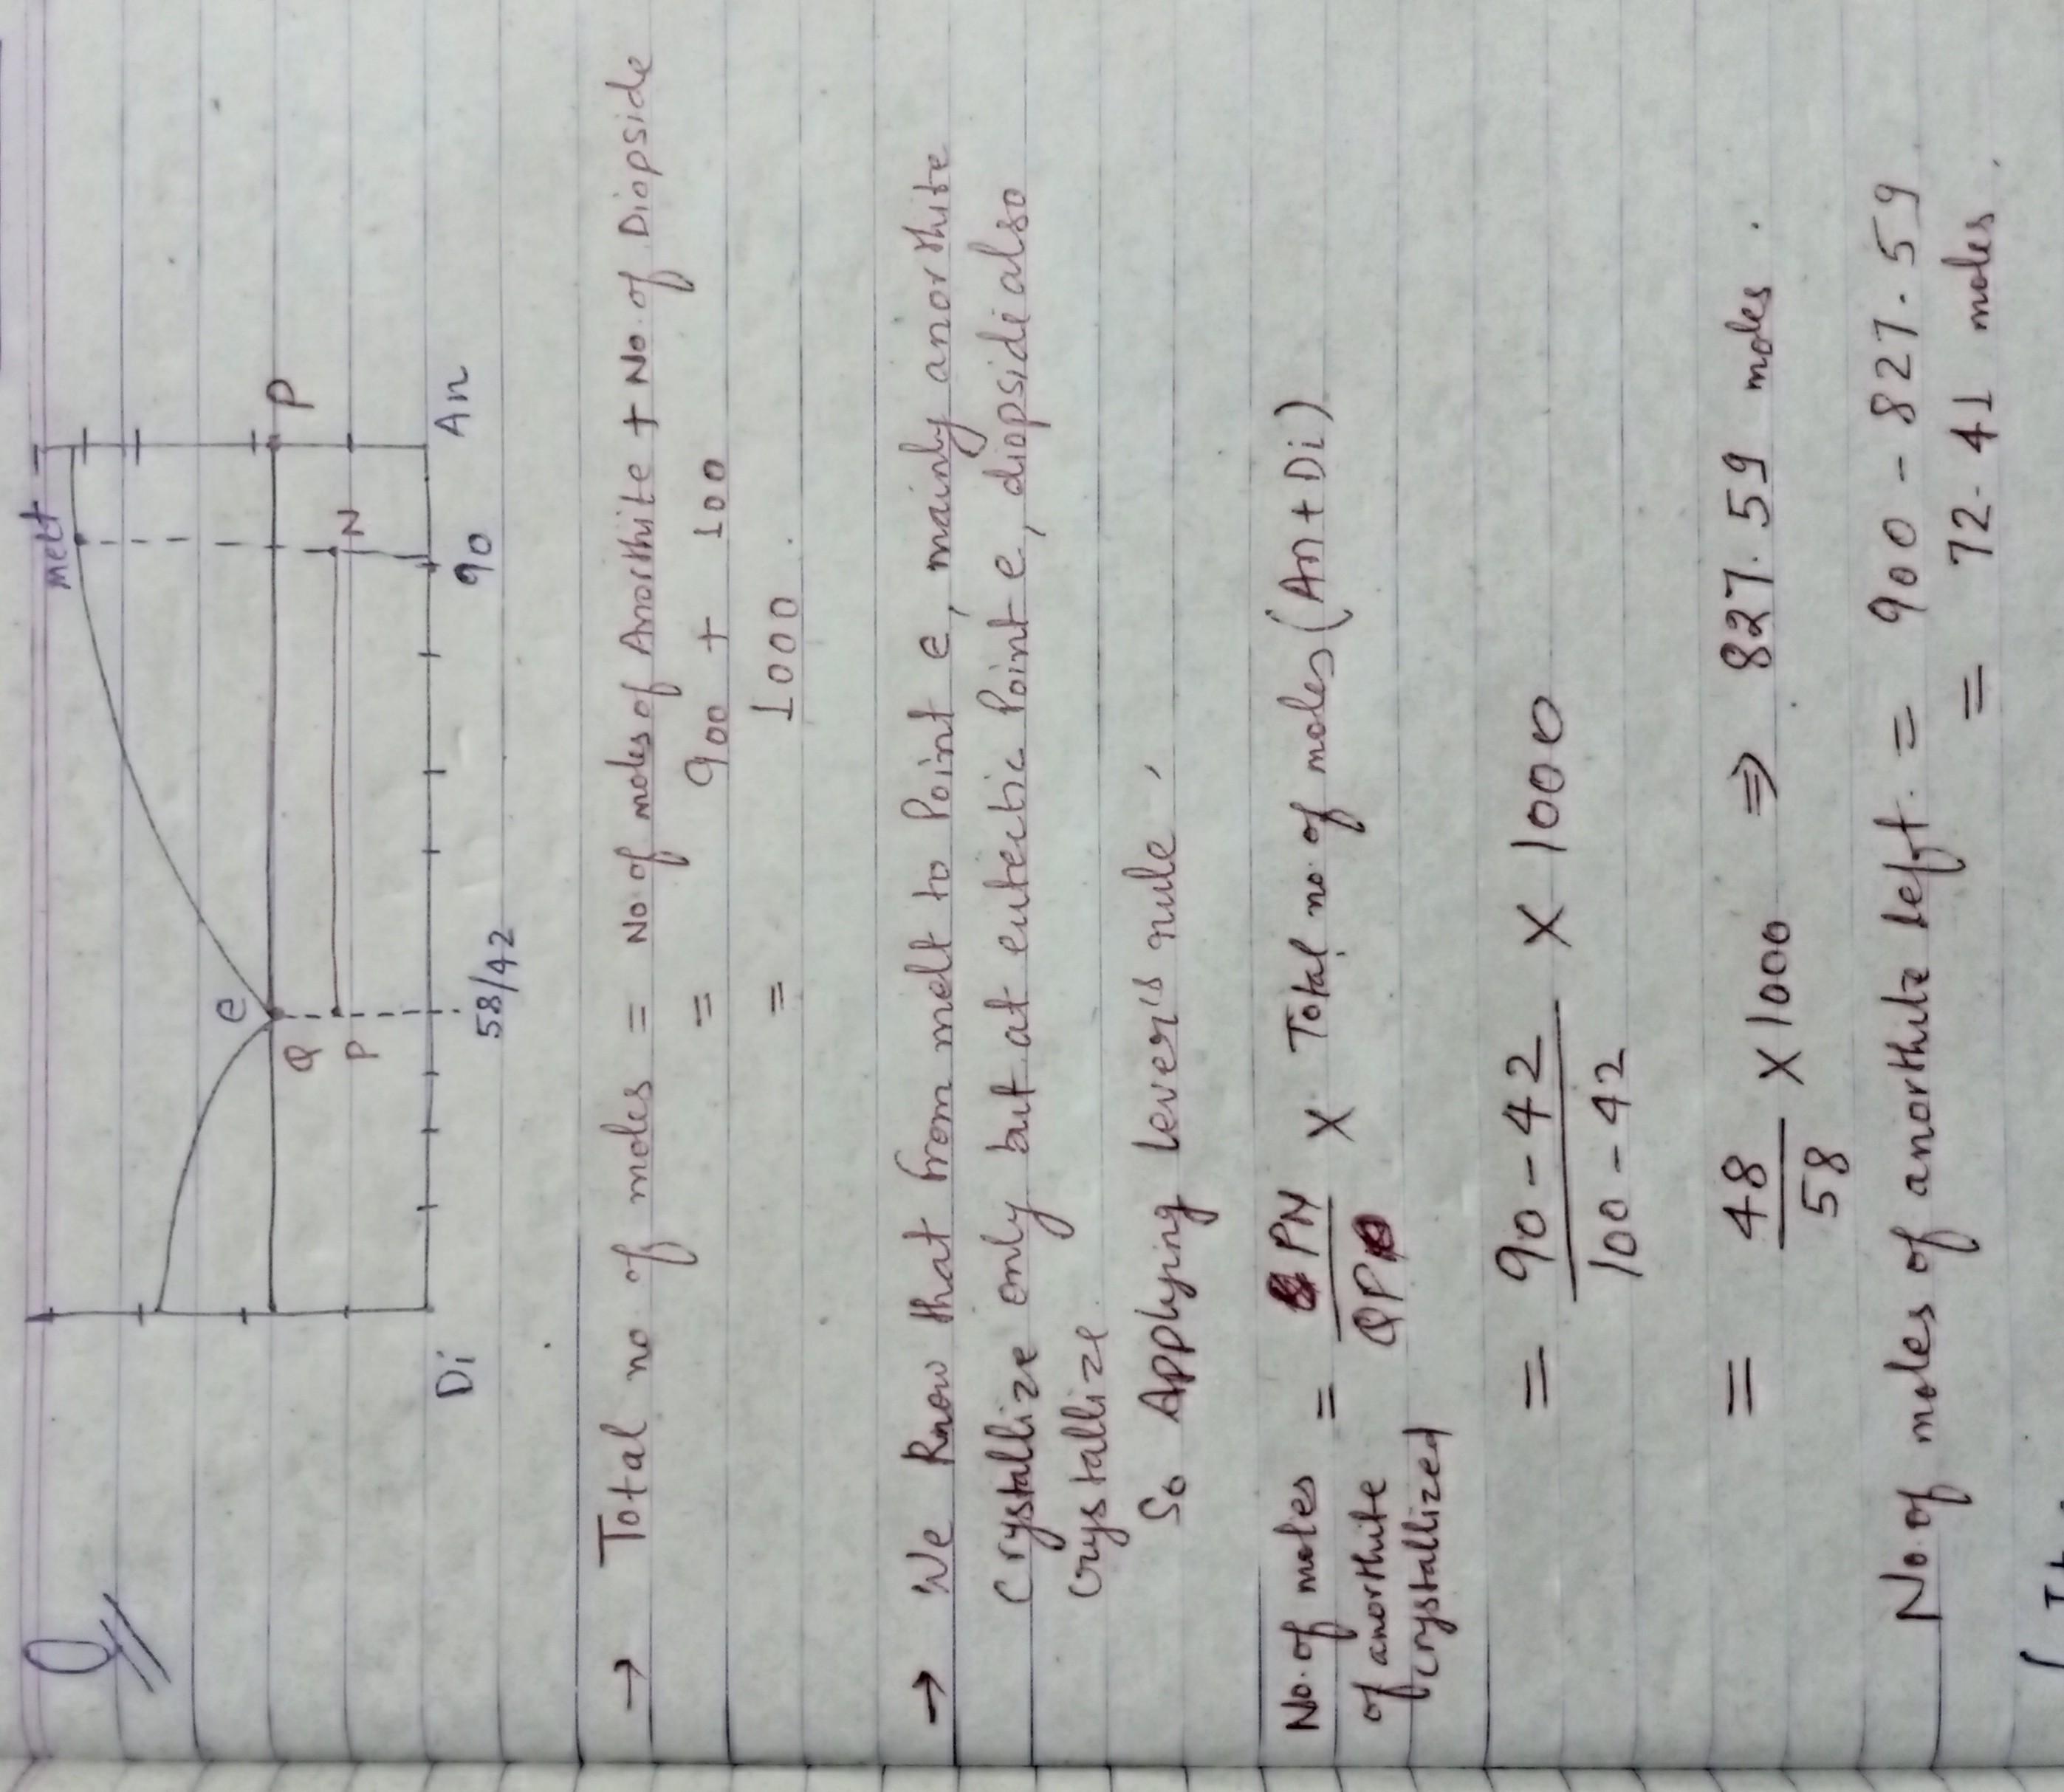 melt
e
P
Q
P
N
Di
58/42
90
An
→ Total no of moles = No of moles of Anorthite + No. of Diopside
= 900 + 100
= 1000.
→ We Know that from melt to Point e, mainly anorthite
Crystallize only but at eutectic Point e, diopside also
Crystallize.
So Applying lever's rule,
No. of moles of anorthite crystallized = PN/QP X Total no. of moles (An + Di)
= 90 - 42/100 - 42 X 1000
= 48/58 X 1000 ⇒ 827.59 moles.
No. of moles of anorthite left. = 900 - 827.59
= 72.41 moles.